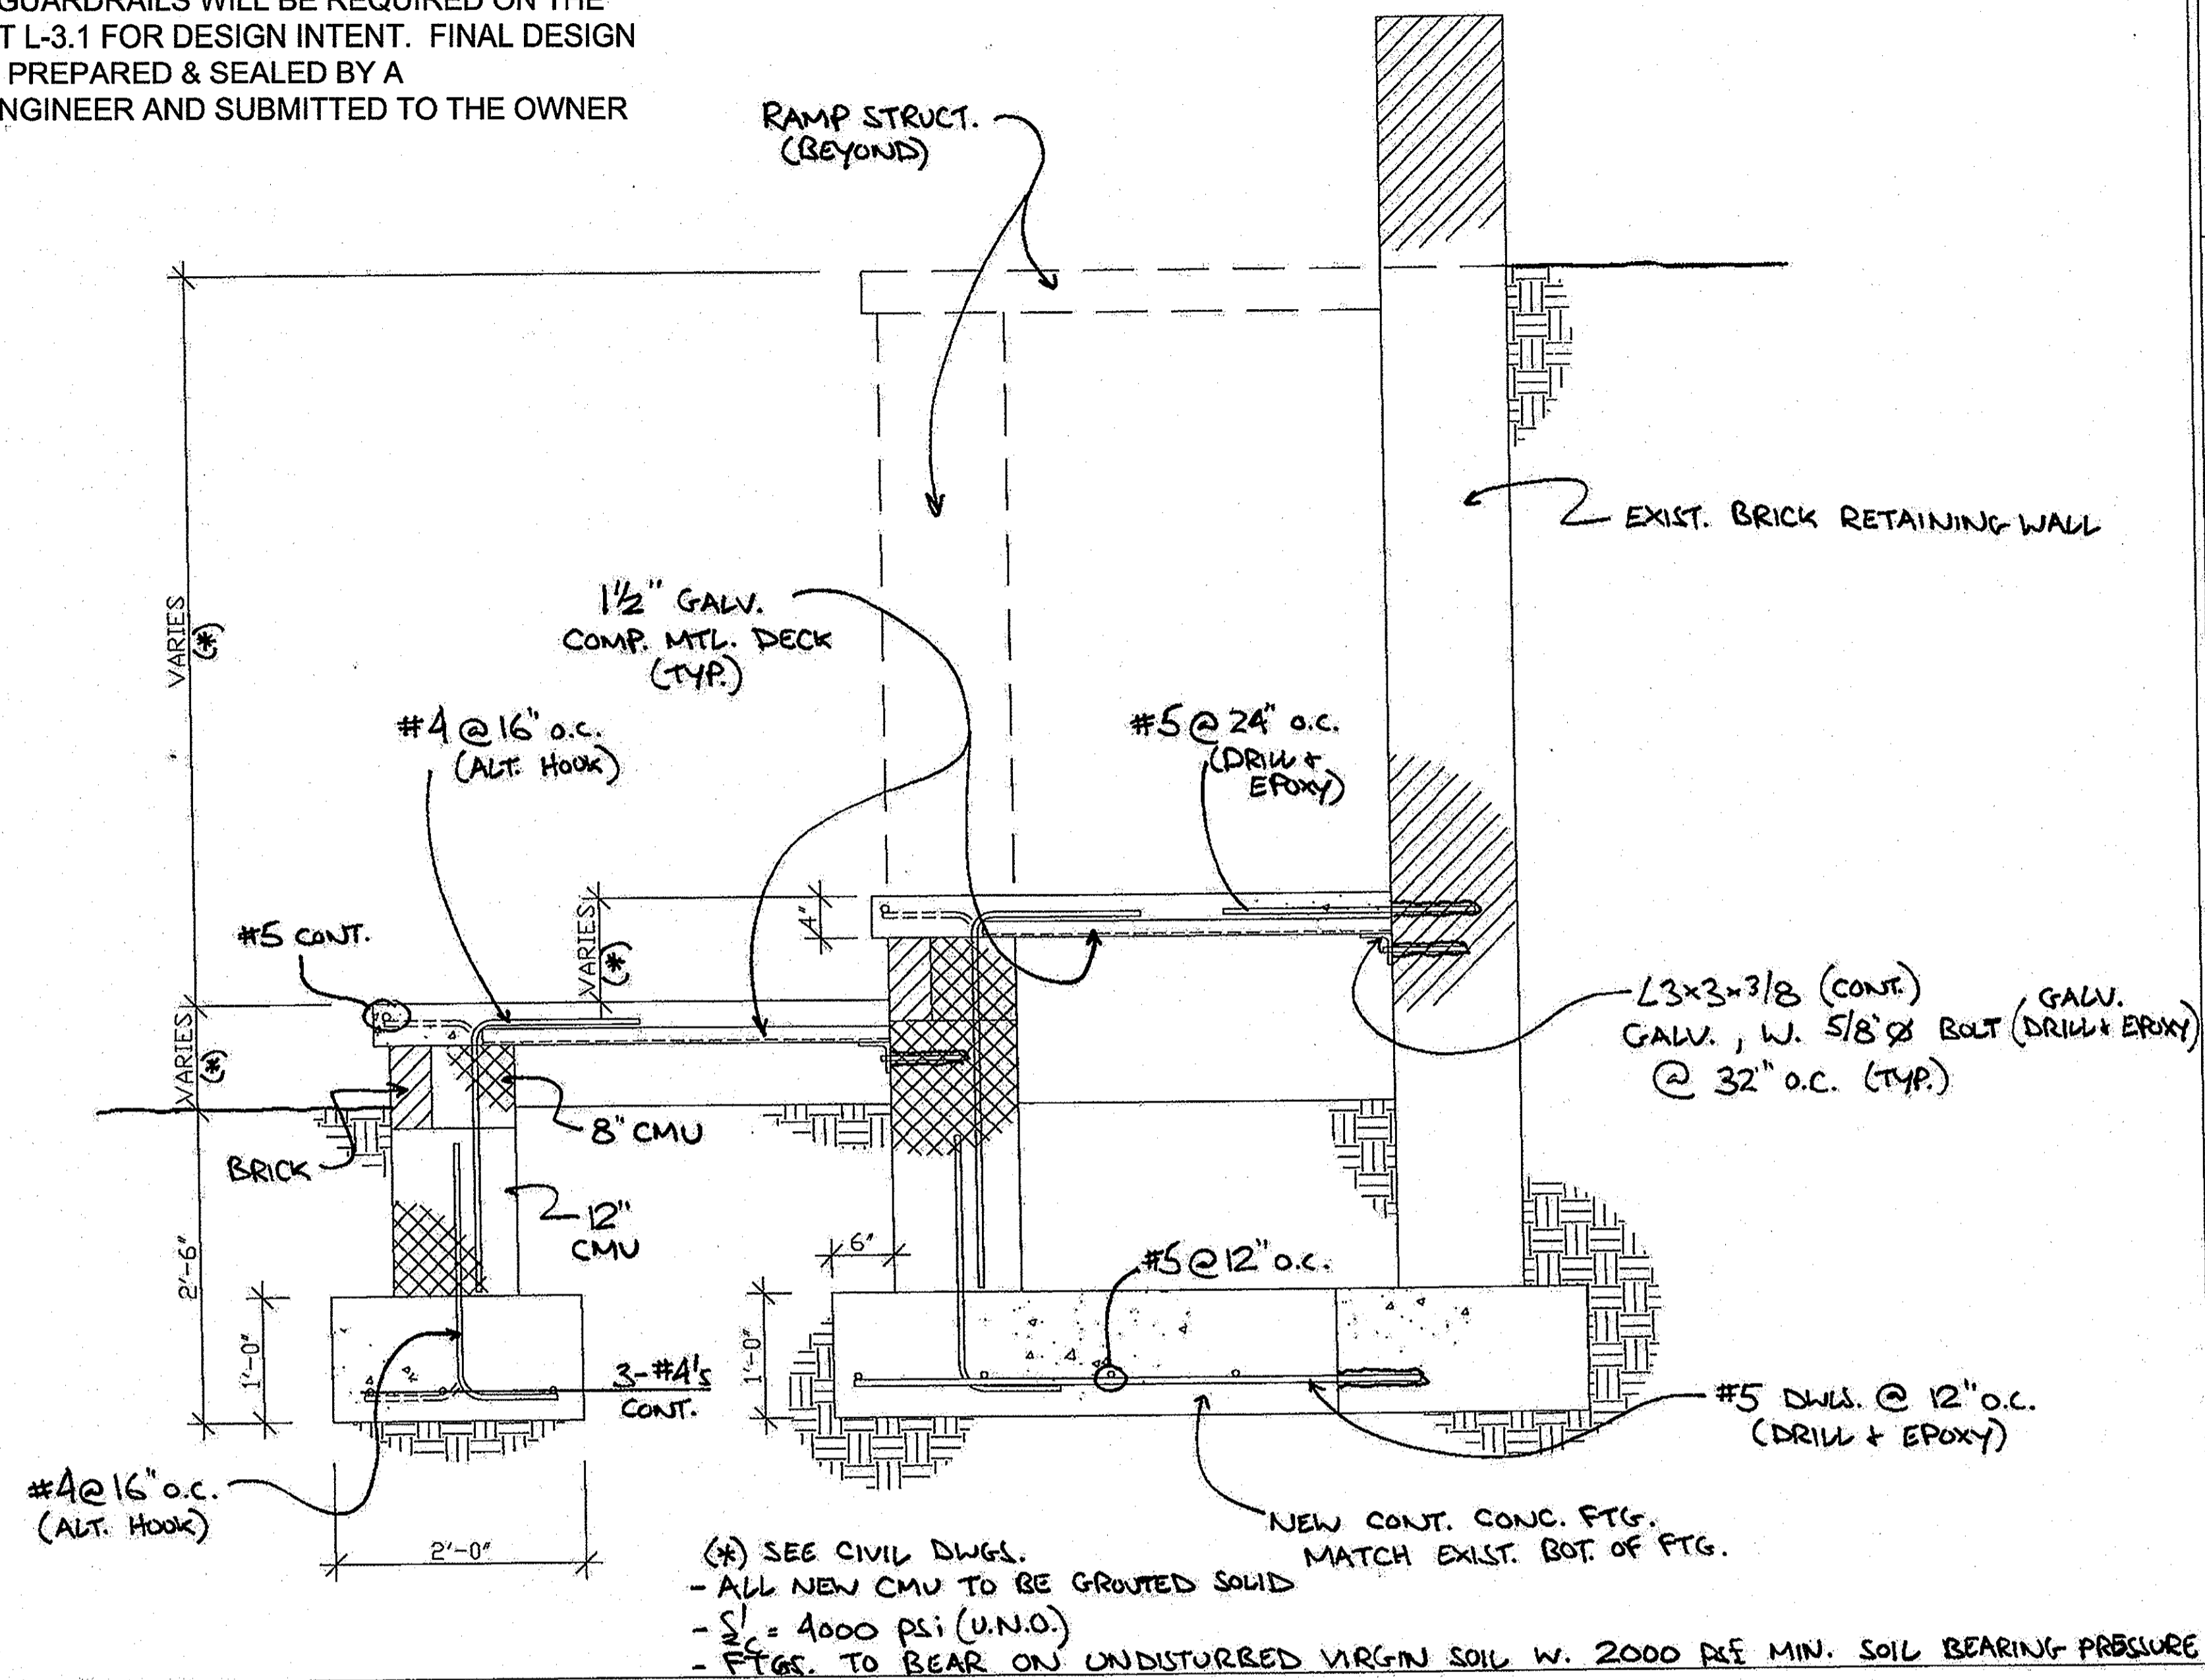 GUARDRAILS WILL BE REQUIRED ON THE
T L-3.1 FOR DESIGN INTENT. FINAL DESIGN
PREPARED & SEALED BY A
NGINEER AND SUBMITTED TO THE OWNER
RAMP STRUCT.
(BEYOND)
EXIST. BRICK RETAINING WALL
1½" GALV.
COMP. MTL. DECK
(TYP.)
VARIES
(*)
#4 @ 16" O.C.
(ALT. HOOK)
#5 @ 24" O.C.
(DRILL +
EPOXY)
#5 CONT.
VARIES
(*)
4"
VARIES
(*)
L3×3×3/8 (CONT.)
GALV., W. 5/8"Ø BOLT (DRILL + EPOXY), GALV.
@ 32" O.C. (TYP.)
8" CMU
BRICK
12"
CMU
2'-6"
6"
#5 @ 12" O.C.
1'-0"
1'-0"
3-#4's
CONT.
#5 DWLS. @ 12" O.C.
(DRILL + EPOXY)
#4 @ 16" O.C.
(ALT. HOOK)
2'-0"
NEW CONT. CONC. FTG.
MATCH EXIST. BOT. OF FTG.
(*) SEE CIVIL DWGS.
- ALL NEW CMU TO BE GROUTED SOLID
- f'c = 4000 psi (U.N.O.)
- FTGS. TO BEAR ON UNDISTURBED VIRGIN SOIL W. 2000 PSF MIN. SOIL BEARING PRESSURE